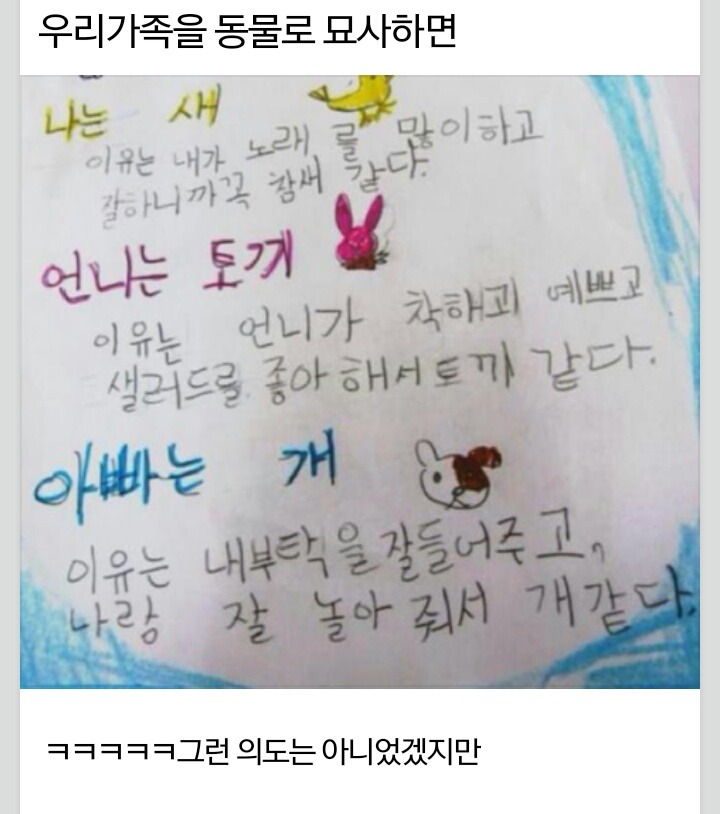 우리가족을 동물로 묘사하면
나는 새
이유는 내가 노래를 많이하고
잘하니까꼭 참새 같다.
언니는 토끼
이유는 언니가 착해고 예쁘고
샐러드를 좋아해서토끼 같다.
아빠는 개
이유는 내부탁을 잘들어주고,
나랑 잘 놀아 줘서 개같다.
ㅋㅋㅋㅋㅋ그런 의도는 아니었겠지만